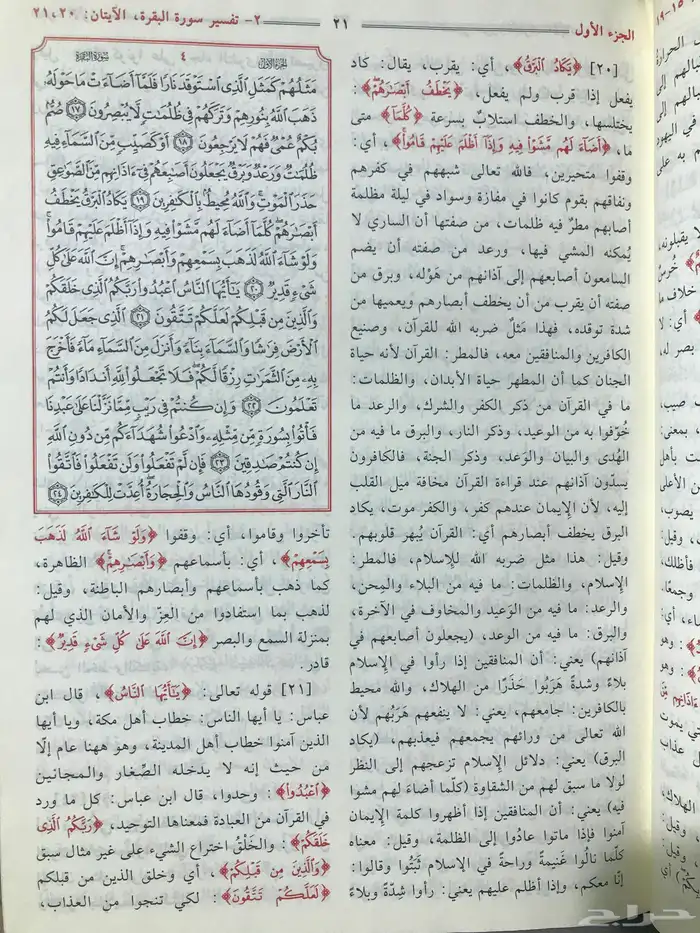 الجزء الأول
٢١
٢- تفسير سورة البقرة، الآيتان: ٢٠، ٢١
[٢٠] ﴿يَكَادُ ٱلْبَرْقُ﴾، أي: يقرب، يقال: كاد
يفعل إذا قرب ولم يفعل، ﴿يَخْطَفُ أَبْصَٰرَهُمْ﴾:
يختلسها، والخطف استلابٌ بسرعة ﴿كُلَّمَآ﴾ متى
ما، ﴿أَضَآءَ لَهُم مَّشَوْا۟ فِيهِ وَإِذَآ أَظْلَمَ عَلَيْهِمْ قَامُوا۟﴾، أي:
وقفوا متحيرين، فالله تعالى شبههم في كفرهم
ونفاقهم بقوم كانوا في مفازة وسواد في ليلة مظلمة
أصابهم مطرٌ فيه ظلمات، من صفتها أن الساري لا
يُمكنه المشي فيها، ورعد من صفته أن يضم
السامعون أصابعهم إلى آذانهم من هَوْله، وبرق من
صفته أن يقرب من أن يخطف أبصارهم ويعميها من
شدة توقده، فهذا مَثلٌ ضربه الله للقرآن، وصنيع
الكافرين والمنافقين معه، فالمطر: القرآن لأنه حياة
الجنان كما أن المطهر حياة الأبدان، والظلمات:
ما في القرآن من ذكر الكفر والشرك، والرعد ما
خُوّفوا به من الوعيد، وذكر النار، والبرق ما فيه من
الهُدى والبيان والوَعد، وذكر الجنة، فالكافرون
يسدّون آذانهم عند قراءة القرآن مخافة ميل القلب
إليه، لأن الإيمان عندهم كفر، والكفر موت، يكاد
البرق يخطف أبصارهم أي: القرآن يُبهر قلوبهم.
وقيل: هذا مثل ضربه الله للإسلام، فالمطر:
الإسلام، والظلمات: ما فيه من البلاء والمِحن،
والرعد: ما فيه من الوَعيد والمخاوف في الآخرة،
والبرق: ما فيه من الوعد، (يجعلون أصابعهم في
آذانهم) يعني: أن المنافقين إذا رأوا في الإسلام
بلاءً وشدةً هَرَبُوا حَذَرًا من الهلاك، والله محيط
بالكافرين: جامعهم، يعني: لا ينفعهم هَرَبُهم لأن
الله تعالى من ورائهم يجمعهم فيعذبهم، (يكاد
البرق) يعني: دلائل الإسلام تزعجهم إلى النظر
لولا ما سبق لهم من الشقاوة (كلّما أضاءَ لهم مشوا
فيه) يعني: أن المنافقين إذا أظهروا كلمة الإيمان
آمنوا فإذا ماتوا عادُوا إلى الظلمة، وقيل: معناه
كلّما نالُوا غَنيمةً وراحةً في الإسلام ثَبَتُوا وقالوا:
إنّا معكم، وإذا أظلم عليهم يعني: رأوا شِدّةً وبلاءً
الجزء الأول
٤
سورة البقرة
مَثَلُهُمْ كَمَثَلِ ٱلَّذِى ٱسْتَوْقَدَ نَارًا فَلَمَّآ أَضَآءَتْ مَا حَوْلَهُۥ
ذَهَبَ ٱللَّهُ بِنُورِهِمْ وَتَرَكَهُمْ فِى ظُلُمَٰتٍ لَّا يُبْصِرُونَ ١٧ صُمٌّۢ
بُكْمٌ عُمْىٌ فَهُمْ لَا يَرْجِعُونَ ١٨ أَوْ كَصَيِّبٍ مِّنَ ٱلسَّمَآءِ فِيهِ
ظُلُمَٰتٌ وَرَعْدٌ وَبَرْقٌ يَجْعَلُونَ أَصَٰبِعَهُمْ فِىٓ ءَاذَانِهِم مِّنَ ٱلصَّوَٰعِقِ
حَذَرَ ٱلْمَوْتِ وَٱللَّهُ مُحِيطٌۢ بِٱلْكَٰفِرِينَ ١٩ يَكَادُ ٱلْبَرْقُ يَخْطَفُ
أَبْصَٰرَهُمْ كُلَّمَآ أَضَآءَ لَهُم مَّشَوْا۟ فِيهِ وَإِذَآ أَظْلَمَ عَلَيْهِمْ قَامُوا۟
وَلَوْ شَآءَ ٱللَّهُ لَذَهَبَ بِسَمْعِهِمْ وَأَبْصَٰرِهِمْ إِنَّ ٱللَّهَ عَلَىٰ كُلِّ
شَىْءٍ قَدِيرٌ ٢٠ يَٰٓأَيُّهَا ٱلنَّاسُ ٱعْبُدُوا۟ رَبَّكُمُ ٱلَّذِى خَلَقَكُمْ
وَٱلَّذِينَ مِن قَبْلِكُمْ لَعَلَّكُمْ تَتَّقُونَ ٢١ ٱلَّذِى جَعَلَ لَكُمُ
ٱلْأَرْضَ فِرَٰشًا وَٱلسَّمَآءَ بِنَآءً وَأَنزَلَ مِنَ ٱلسَّمَآءِ مَآءً فَأَخْرَجَ
بِهِۦ مِنَ ٱلثَّمَرَٰتِ رِزْقًا لَّكُمْ فَلَا تَجْعَلُوا۟ لِلَّهِ أَندَادًا وَأَنتُمْ
تَعْلَمُونَ ٢٢ وَإِن كُنتُمْ فِى رَيْبٍ مِّمَّا نَزَّلْنَا عَلَىٰ عَبْدِنَا
فَأْتُوا۟ بِسُورَةٍ مِّن مِّثْلِهِۦ وَٱدْعُوا۟ شُهَدَآءَكُم مِّن دُونِ ٱللَّهِ
إِن كُنتُمْ صَٰدِقِينَ ٢٣ فَإِن لَّمْ تَفْعَلُوا۟ وَلَن تَفْعَلُوا۟ فَٱتَّقُوا۟
ٱلنَّارَ ٱلَّتِى وَقُودُهَا ٱلنَّاسُ وَٱلْحِجَارَةُ أُعِدَّتْ لِلْكَٰفِرِينَ ٢٤
تأخروا وقاموا، أي: وقفوا ﴿وَلَوْ شَآءَ ٱللَّهُ لَذَهَبَ
بِسَمْعِهِمْ﴾، أي: بأسماعهم ﴿وَأَبْصَٰرِهِمْ﴾ الظاهرة،
كما ذهب بأسماعهم وأبصارهم الباطنة، وقيل:
لذهب بما استفادوا من العِزّ والأمان الذي لهم
بمنزلة السمع والبصر ﴿إِنَّ ٱللَّهَ عَلَىٰ كُلِّ شَىْءٍ قَدِيرٌ﴾:
قادر.
[٢١] قوله تعالى: ﴿يَٰٓأَيُّهَا ٱلنَّاسُ﴾، قال ابن
عباس: يا أيها الناس: خطاب أهل مكة، ويا أيها
الذين آمنوا خطاب أهل المدينة، وهو ههنا عام إلّا
من حيث إنه لا يدخله الصِّغار والمجانين
﴿ٱعْبُدُوا۟﴾: وحدوا، قال ابن عباس: كل ما ورد
في القرآن من العبادة فمعناها التوحيد، ﴿رَبَّكُمُ ٱلَّذِى
خَلَقَكُمْ﴾: والخَلْقُ اختراع الشيء على غير مثال سبق
﴿وَٱلَّذِينَ مِن قَبْلِكُمْ﴾، أي وخلق الذين من قبلكم
﴿لَعَلَّكُمْ تَتَّقُونَ﴾: لكي تنجوا من العذاب،
حراج